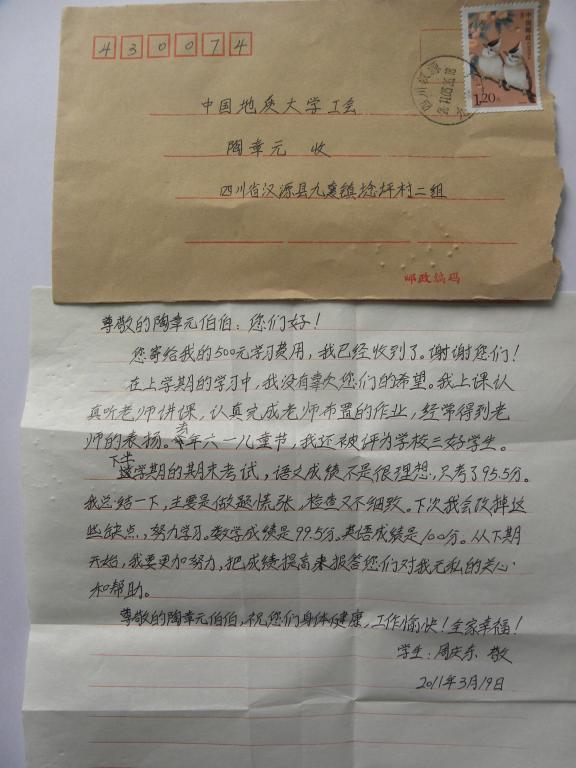 430074
中国邮政
1.20元
四川汉源
中国地质大学工会
陶章元 收
四川省汉源县九襄镇
坪村二组
邮政编码
尊敬的陶章元伯伯：您们好！
您寄给我的500元学习费用，我已经收到了。谢谢您们！
在上学期的学习中，我没有辜负您们的希望。我上课认
真听老师讲课，认真完成老师布置的作业，经常得到老
师的表扬。去年六一儿童节，我还被评为学校三好学生。
下半学期的期末考试，语文成绩不是很理想，只考了95.5分。
我总结一下，主要是做题慌张，检查又不细致。下次我会改掉这
些缺点，努力学习。数学成绩是99.5分。英语成绩是100分。从下期
开始，我要更加努力，把成绩提高来报答您们对我无私的关心
和帮助。
尊敬的陶章元伯伯，祝您们身体健康，工作愉快！全家幸福！
学生：周庆东 敬
2011年3月19日